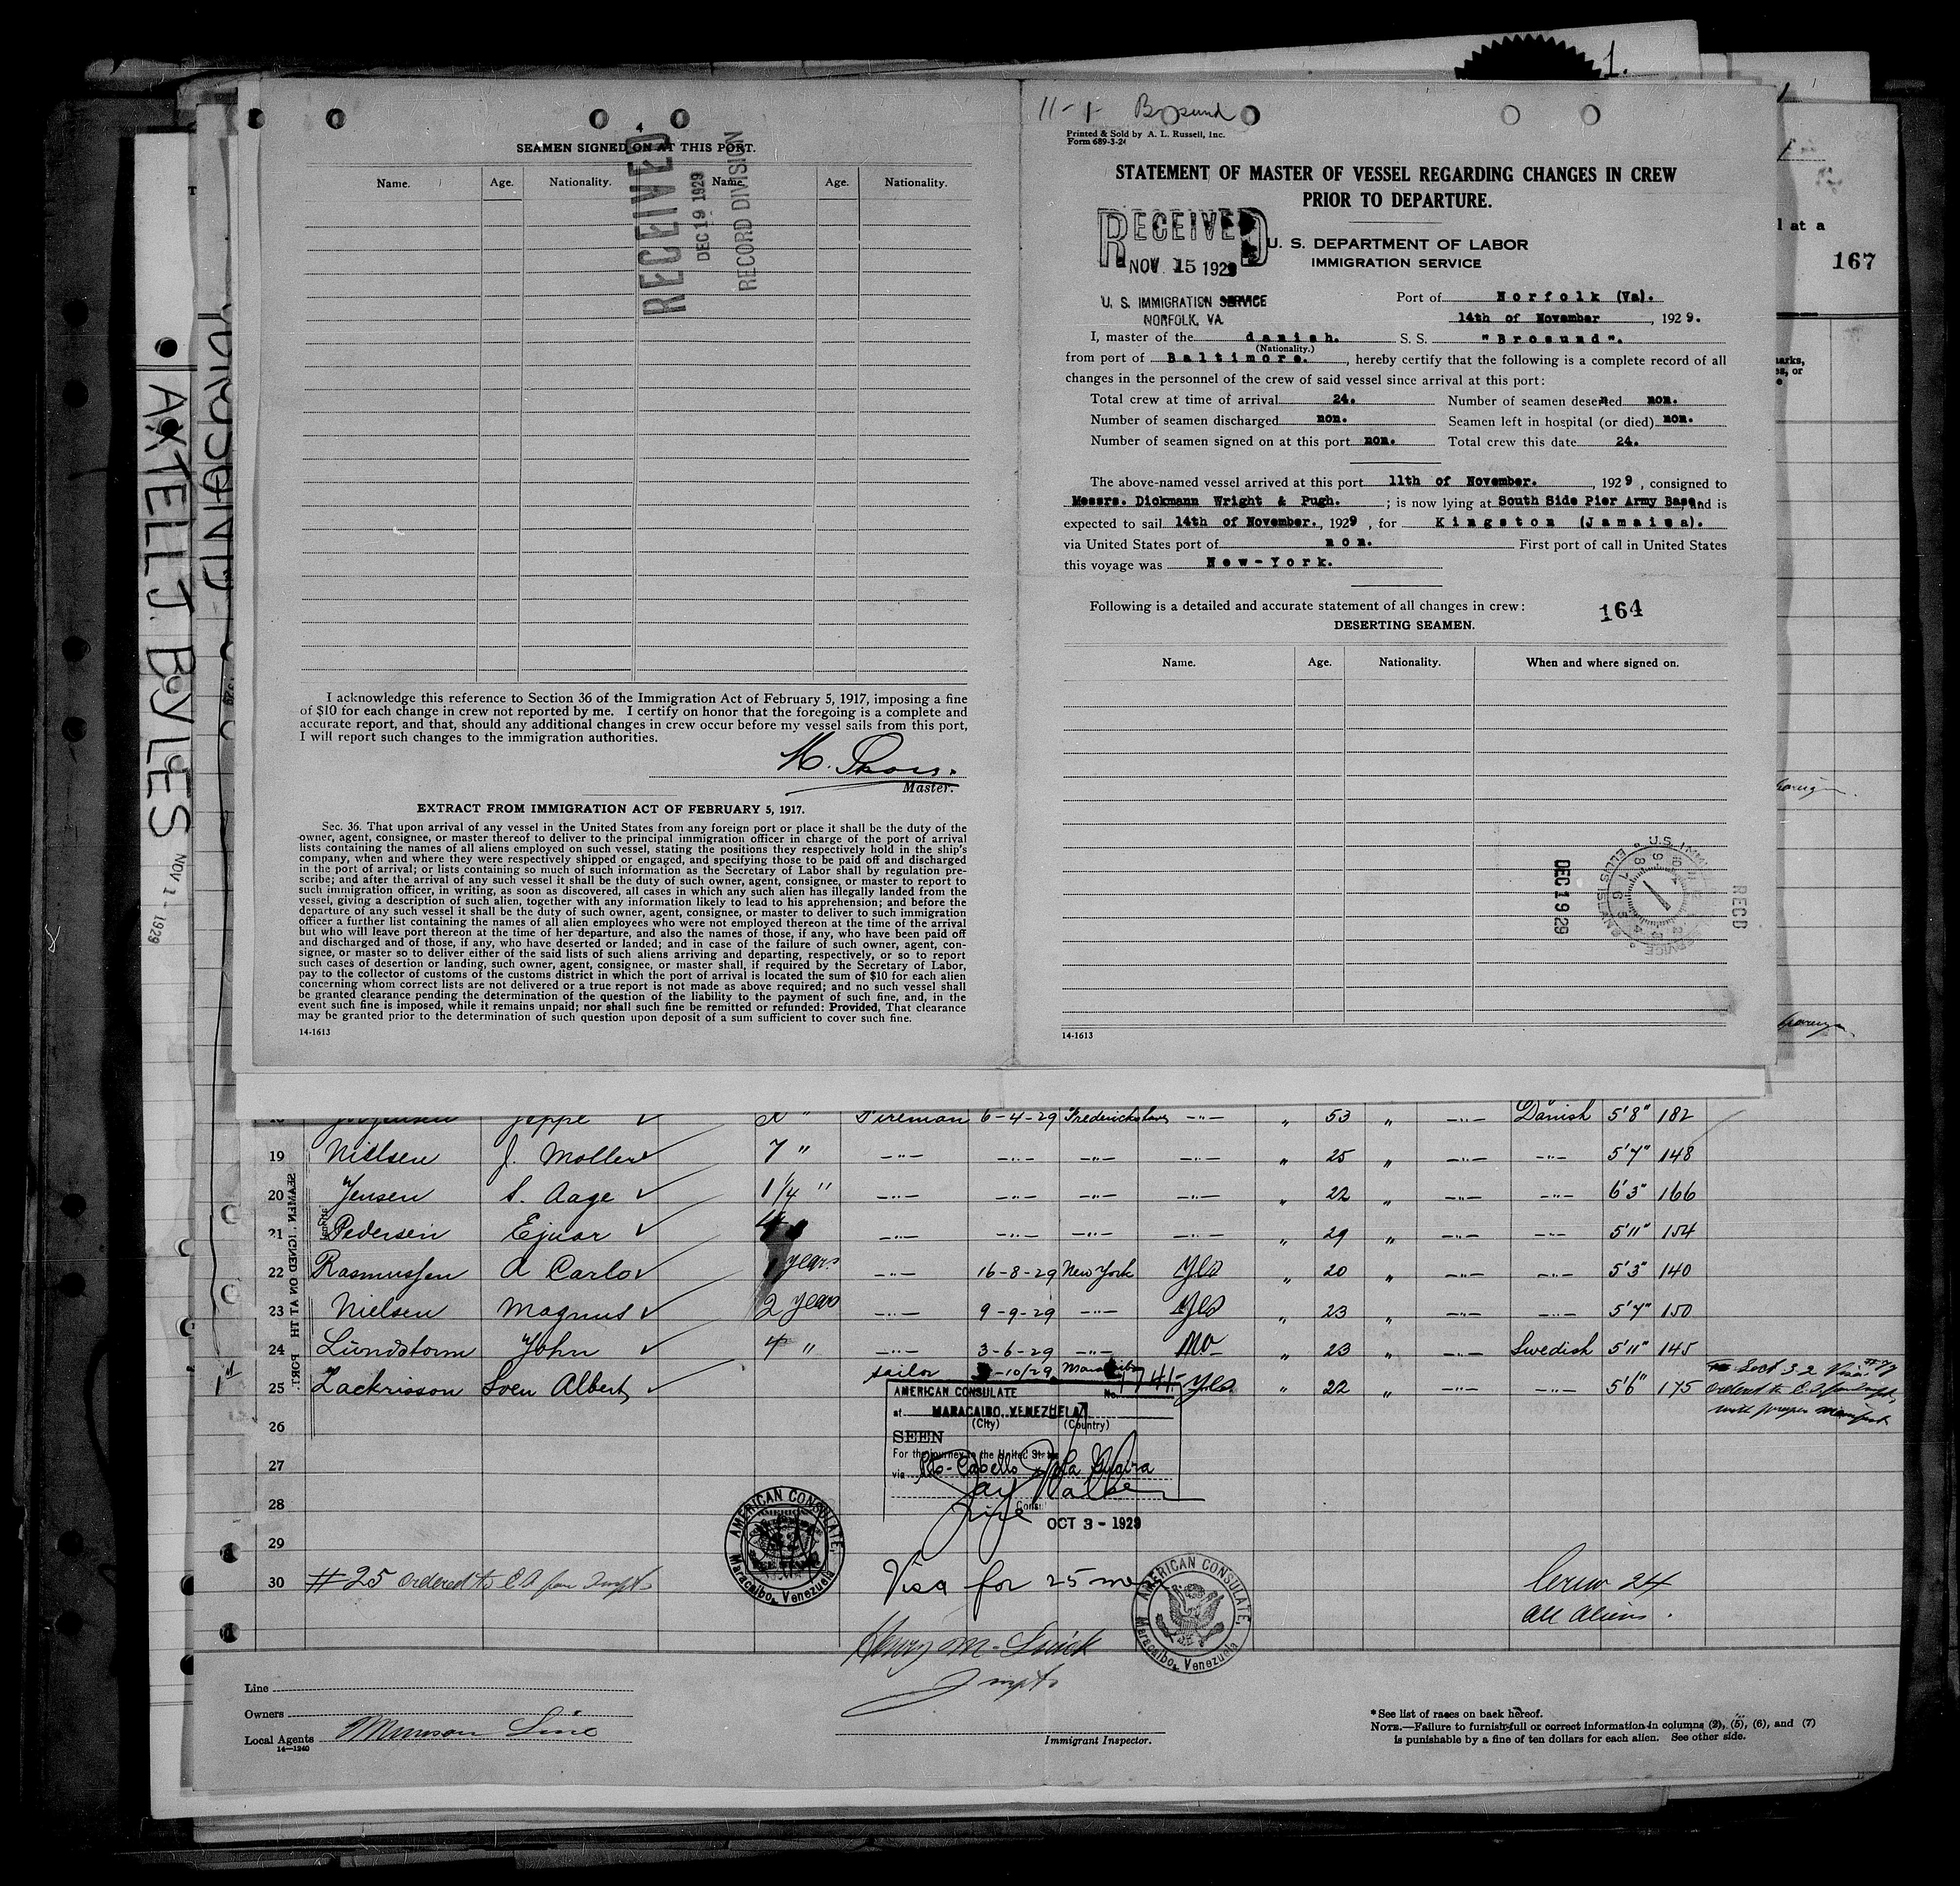 1.
4
SEAMEN SIGNED ON AT THIS PORT.
Name. Age. Nationality. Name. Age. Nationality.
RECEIVED
DEC 19 1929
RECORD DIVISION
I acknowledge this reference to Section 36 of the Immigration Act of February 5, 1917, imposing a fine
of $10 for each change in crew not reported by me. I certify on honor that the foregoing is a complete and
accurate report, and that, should any additional changes in crew occur before my vessel sails from this port,
I will report such changes to the immigration authorities.
Master.
EXTRACT FROM IMMIGRATION ACT OF FEBRUARY 5, 1917.
Sec. 36. That upon arrival of any vessel in the United States from any foreign port or place it shall be the duty of the
owner, agent, consignee, or master thereof to deliver to the principal immigration officer in charge of the port of arrival
lists containing the names of all aliens employed on such vessel, stating the positions they respectively hold in the ship's
company, when and where they were respectively shipped or engaged, and specifying those to be paid off and discharged
in the port of arrival; or lists containing so much of such information as the Secretary of Labor shall by regulation pre-
scribe; and after the arrival of any such vessel it shall be the duty of such owner, agent, consignee, or master to report to
such immigration officer, in writing, as soon as discovered, all cases in which any such alien has illegally landed from the
vessel, giving a description of such alien, together with any information likely to lead to his apprehension; and before the
departure of any such vessel it shall be the duty of such owner, agent, consignee, or master to deliver to such immigration
officer a further list containing the names of all alien employees who were not employed thereon at the time of the arrival
but who will leave port thereon at the time of her departure, and also the names of those, if any, who have been paid off
and discharged and of those, if any, who have deserted or landed; and in case of the failure of such owner, agent, con-
signee, or master so to deliver either of the said lists of such aliens arriving and departing, respectively, or so to report
such cases of desertion or landing, such owner, agent, consignee, or master shall, if required by the Secretary of Labor,
pay to the collector of customs of the customs district in which the port of arrival is located the sum of $10 for each alien
concerning whom correct lists are not delivered or a true report is not made as above required; and no such vessel shall
be granted clearance pending the determination of the question of the liability to the payment of such fine, and, in the
event such fine is imposed, while it remains unpaid; nor shall such fine be remitted or refunded: Provided, That clearance
may be granted prior to the determination of such question upon deposit of a sum sufficient to cover such fine.
14-1613
11-1- Brosund
Printed & Sold by A. L. Russell, Inc.
Form 689-3-24
STATEMENT OF MASTER OF VESSEL REGARDING CHANGES IN CREW
PRIOR TO DEPARTURE.
RECEIVED
NOV 15 1929
U. S. IMMIGRATION SERVICE
NORFOLK, VA.
U. S. DEPARTMENT OF LABOR
IMMIGRATION SERVICE
Port of Norfolk (Va).
14th of November, 1929.
I, master of the danish. S. S. "Brosund".
(Nationality.)
from port of Baltimore., hereby certify that the following is a complete record of all
changes in the personnel of the crew of said vessel since arrival at this port:
Total crew at time of arrival 24. Number of seamen deserted non.
Number of seamen discharged non. Seamen left in hospital (or died) non.
Number of seamen signed on at this port non. Total crew this date 24.
The above-named vessel arrived at this port 11th of November., 1929, consigned to
Messrs. Dickmann Wright & Pugh. ; is now lying at South Side Pier Army Base, and is
expected to sail 14th of November., 1929, for Kingston (Jamaica).
via United States port of non. First port of call in United States
this voyage was New-York.
Following is a detailed and accurate statement of all changes in crew:
164
DESERTING SEAMEN.
Name. Age. Nationality. When and where signed on.
DEC 19 29
RECD
14-1613
l at a
167
AXTELL J. BYLES
NOV 1 1929
Jeppe Fireman 6-4-29 " 53 " -"- Danish 5'8" 182
19 Nielsen J. Moller 7 " -"- -"- -"- -"- " 25 " -"- -"- 5'7" 148
20 Jensen S. Aage 1 1/4 " -"- -"- -"- -"- " 22 " -"- -"- 6'3" 166
21 Pedersen Ejnar -"- -"- -"- -"- " 29 " -"- -"- 5'11" 154
22 Rasmussen A Carlo years -"- 16-8-29 New York Yes " 20 " -"- -"- 5'3" 140
23 Nielsen Magnus 2 years -"- 9-9-29 -"- Yes " 23 " -"- -"- 5'7" 150
24 Lundstorm John 4 " -"- 3-6-29 -"- No " 23 " -"- Swedish 5'11" 145
25 Zackrisson Sven Albert sailor -10/29 Yes " 22 " -"- -"- 5'6" 175
26
27
28
29
30
AMERICAN CONSULATE No.
at MARACAIBO, VENEZUELA
(City) (Country)
SEEN
For the journey to the United States
via Pto-Cabello La Guaira
Jay Walker
Vice Consul
OCT 3 - 1929
AMERICAN CONSULATE,
Maracaibo, Venezuela
Visa for 25 men
AMERICAN CONSULATE,
Maracaibo, Venezuela
#25 ordered to
Crew 24
All Aliens.
Line
Owners
Local Agents Munson Line
14-1240
Immigrant Inspector.
*See list of races on back hereof.
NOTE.—Failure to furnish full or correct information in columns (2), (5), (6), and (7)
is punishable by a fine of ten dollars for each alien. See other side.